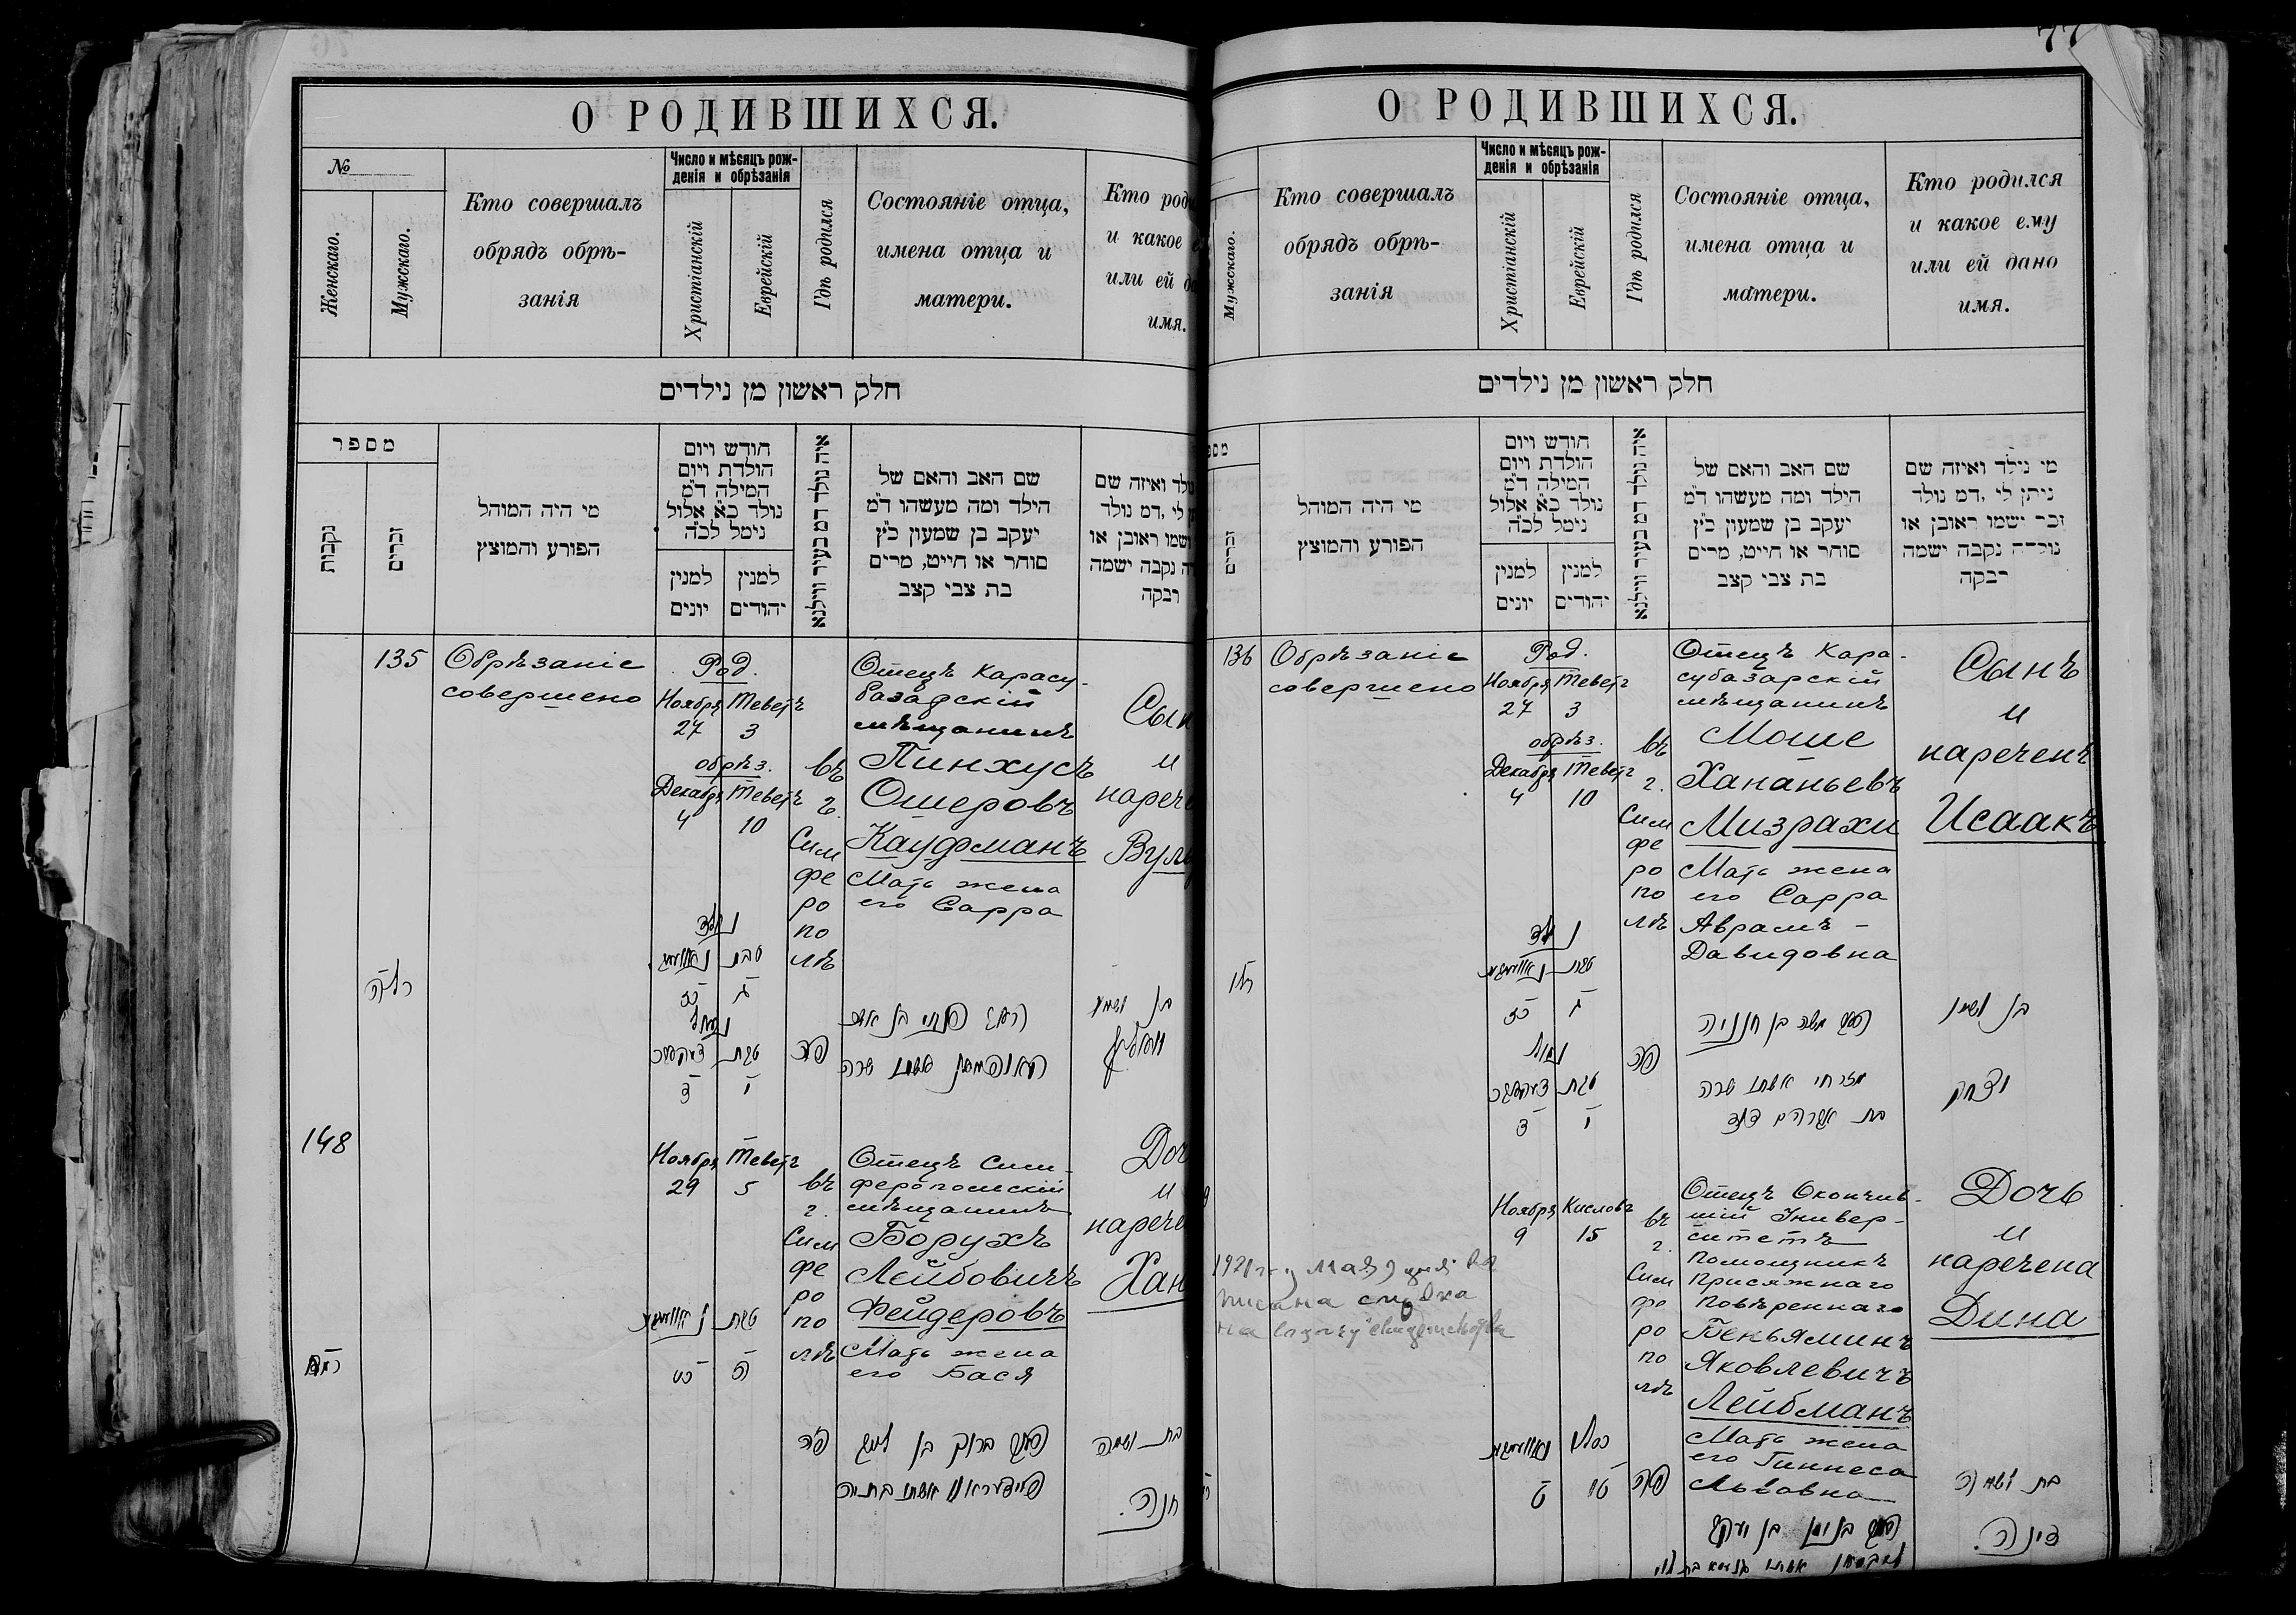 О РОДИВШИХСЯ.
№
Женскаго.
Мужскаго.
Кто совершалъ
обрядъ обрѣ-
занія
Число и мѣсяцъ рож-
денія и обрѣзанія
Христіанскій
Еврейскій
Гдѣ родился
Состояніе отца,
имена отца и
матери.
Кто род
и какое
или ей да
имя.
חלק ראשון מן נילדים
מספר
נקבות
זכרים
מי היה המוהל
הפורע והמוצץ
חודש ויום
הולדת ויום
המילה ד״מ
נולד כ״א אלול
נימל לכ״ה
למנין
יונים
למנין
יהודים
איה נולד דמ בעיר ווילנא
שם האב והאם של
הילד ומה מעשהו ד״מ
יעקב בן שמעון כ״ץ
סוחר או חייט, מרים
בת צבי קצב
ולד ואיזה שם
לי ,דמ נולד
ושמו ראובן או
ה נקבה ישמה
רבקה
135
Обрѣзаніе
совершено
Род.
Ноября Теветъ
27 3
обрѣз.
Декабря Теветъ
4 10
въ
г.
Сим
фе
ро
по
лѣ
Отецъ Карасу-
базарскій
мѣщанинъ
Пинхусъ
Ошеровъ
Кауфманъ
Мать жена
его Сарра
Сын
и
нарече
Вуль
נולד
טבת
ג
כז
נימול
טבת
י
ד
קלה
בן ושמו
וואלף
148
Ноября Теветъ
29 5
въ
г.
Сим
фе
ро
по
лѣ
Отецъ Сим-
феропольскій
мѣщанинъ
Борухъ
Лейбовичъ
Фейдеровъ
Мать жена
его Бася
Доч
и
нарече
Хан
טבת
ה
כט
ברוך בן לייב
בת ושמה
חנה.
77
О РОДИВШИХСЯ.
Мужскаго.
Кто совершалъ
обрядъ обрѣ-
занія
Число и мѣсяцъ рож-
денія и обрѣзанія
Христіанскій
Еврейскій
Гдѣ родился
Состояніе отца,
имена отца и
матери.
Кто родился
и какое ему
или ей дано
имя.
חלק ראשון מן נילדים
מספ
זכרים
מי היה המוהל
הפורע והמוצץ
חודש ויום
הולדת ויום
המילה ד״מ
נולד כ״א אלול
נימל לכ״ה
למנין
יונים
למנין
יהודים
איה נולד דמ בעיר ווילנא
שם האב והאם של
הילד ומה מעשהו ד״מ
יעקב בן שמעון כ״ץ
סוחר או חייט, מרים
בת צבי קצב
מי נילד ואיזה שם
ניתן לי ,דמ נולד
זכר ישמו ראובן או
נולדה נקבה ישמה
רבקה
136
Обрѣзаніе
совершено
Род.
Ноября Теветъ
27 3
обрѣз.
Декабря Теветъ
4 10
въ
г.
Сим
фе
ро
по
лѣ
Отецъ Кара-
субазарскій
мѣщанинъ
Моше
Хананьевъ
Мизрахи
Мать жена
его Сарра
Аврамъ-
Давидовна
Сынъ
и
нареченъ
Исаакъ
נולד
טבת
ג
כז
טבת
י
ד
משה בן חנניה
מזרחי אשתו שרה
בת אברהם דוד
בן ושמו
יצחק
Ноября Кислевъ
9 15
въ
г.
Сим
фе
ро
по
лѣ
Отецъ Окончив-
шій Универ-
ситетъ
Помощникъ
Присяжнаго
Повѣреннаго
Беньяминъ
Яковлевичъ
Лейбманъ
Мать жена
его Гиннеса
Львовна
Дочь
и
наречена
Дина
כסלו
טו
ט
בנימין בן יעקב
בת ושמה
דינה.